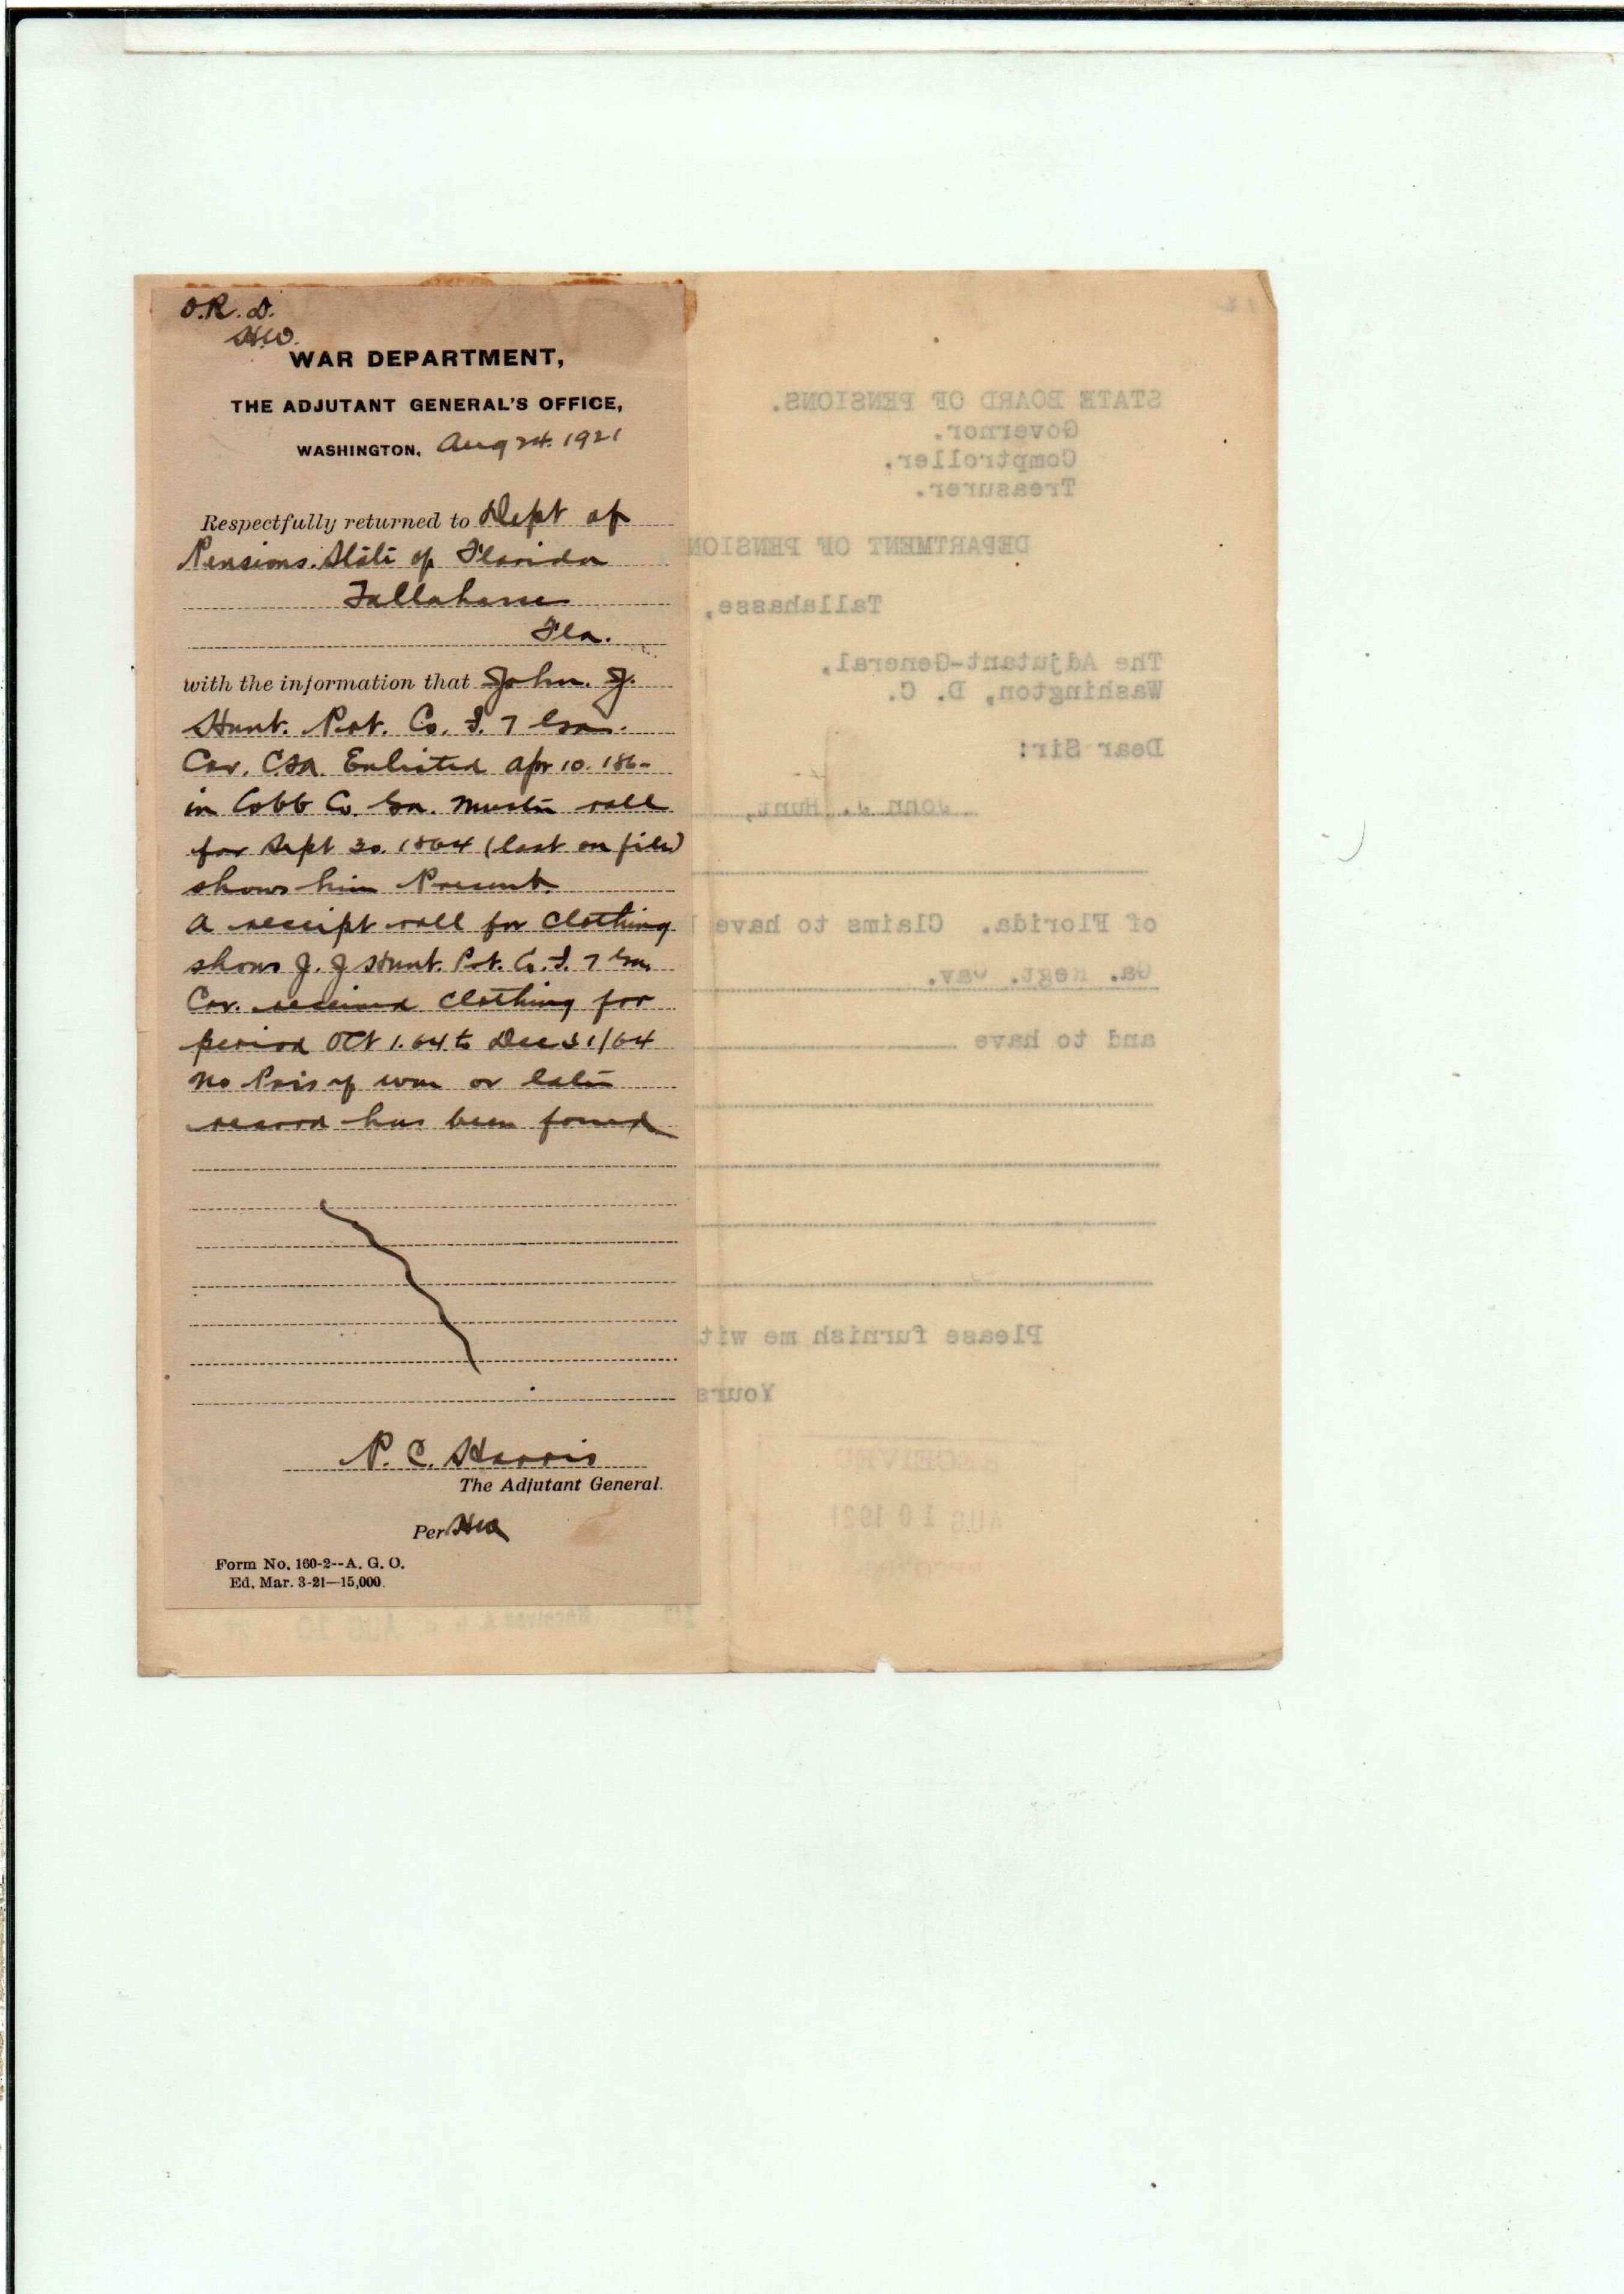 O.R.D.
HW.
WAR DEPARTMENT,
THE ADJUTANT GENERAL'S OFFICE,
WASHINGTON, Aug 24. 1921
Respectfully returned to Dept of
Pensions. State of Florida
Tallahassee
Fla.
with the information that John. J.
Hunt. Pvt. Co. I. 7 Ga.
Cav. CSA. Enlisted Apr 10. 186-
in Cobb Co. Ga. Muster roll
for Sept 30. 1864 (last on file)
shows him Present.
A receipt roll for clothing
shows J. J Hunt. Pvt. Co. I. 7 Ga.
Cav. received clothing for
period Oct 1. 64 to Dec 31/64
No Pris of war or later
record has been found
P. C. Harris
The Adjutant General.
Per HW
Form No. 160-2--A. G. O.
Ed. Mar. 3-21—15,000.
STATE BOARD OF PENSIONS.
Governor.
Comptroller.
Treasurer.
DEPARTMENT OF PENSION
Tallahasse,
The Adjutant-General,
Washington, D. C.
Dear Sir:
John J. Hunt,
of Florida. Claims to have
Ga. Regt. Cav.
and to have
Please furnish me wit
Yours
RECEIVED
AUG 10 1921
Received A. G. O. AUG 10